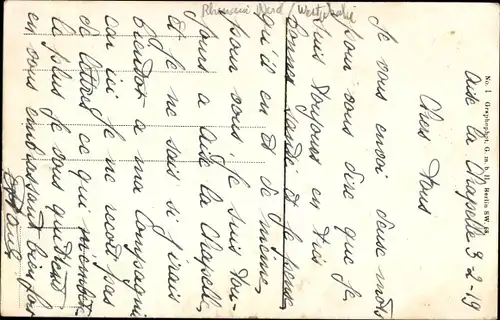 Rhénanie Nord / Westphalie
No. 1 Graphophot, G. m. b. H., Berlin SW. 68.
Aix la Chapelle 3-2-19
Chers Tous
Je vous envoi deux mots
pour vous dire que je
suis toujours en très
bonne santé et je pense
qu'il en est de même
pour vous. Je suis tou-
jours a Aix la Chapelle
et Je ne sais si j'irais
bientot a ma Compagnie
car ici je ne recoit pas
de lettres ce qui m'embête
le plus. Je vous quittent
en vous embrassant bien fort